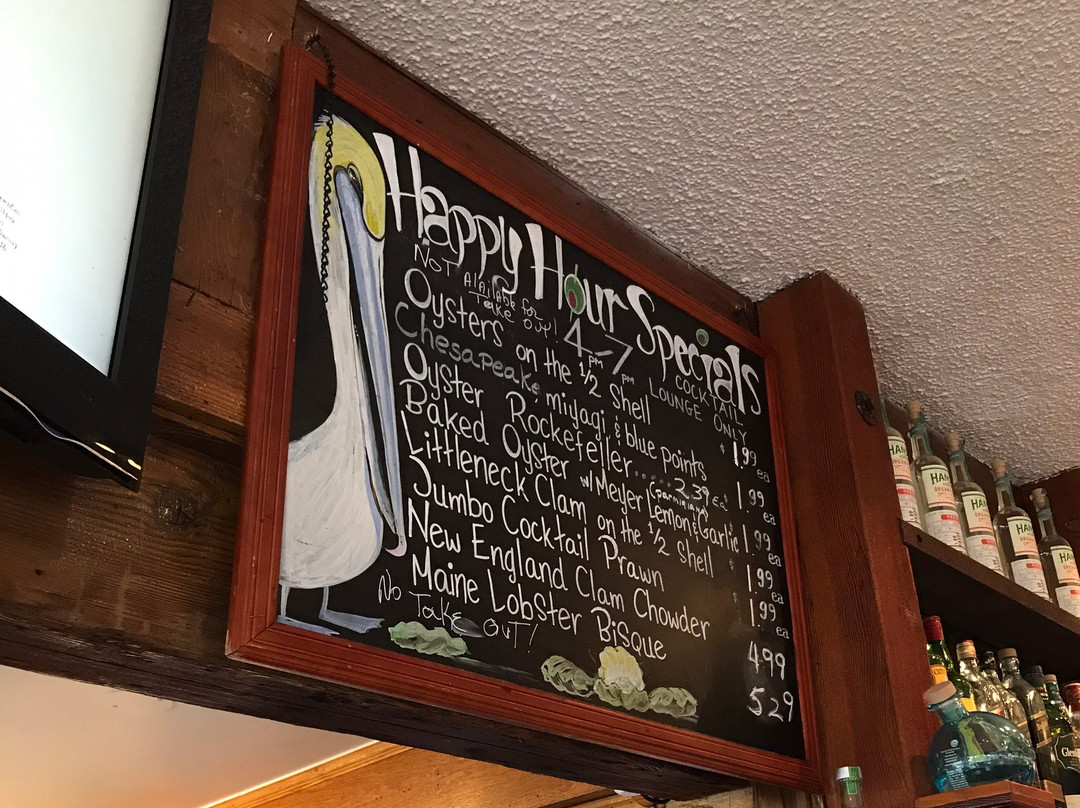 Happy Hour Specials
Not Alailable for
Take Out!
4pm-7pm
COCKTAIL
LOUNGE ONLY
Oysters on the 1/2 Shell
Chesapeake, miyagi & blue points $1.99 ea
Oyster Rockefeller..... 2.39 ea $1.99 ea
Baked Oyster w/ Meyer Lemon & Garlic $1.99 ea
Littleneck Clam on the 1/2 Shell $1.99 ea
Jumbo Cocktail Prawn $1.99 ea
New England Clam Chowder 4.99
Maine Lobster Bisque 5.29
No Take Out!
HAN
HAN
HAN
HAN
HAN